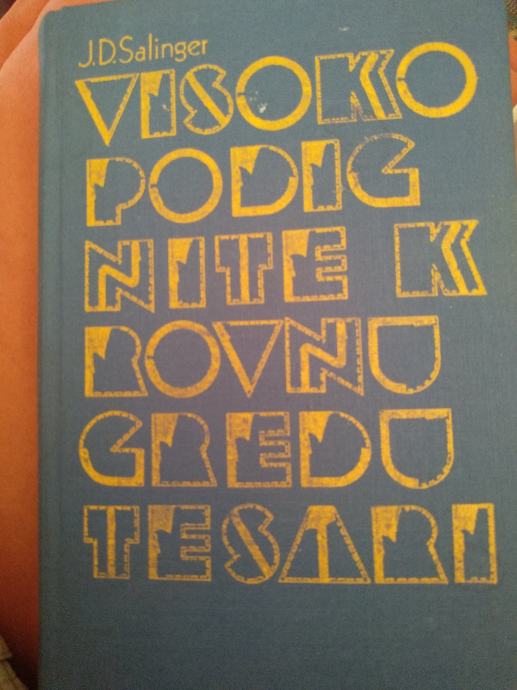 J.D. Salinger
VISOKO
PODIG
NITE K
ROVNU
GREDU
TESARI